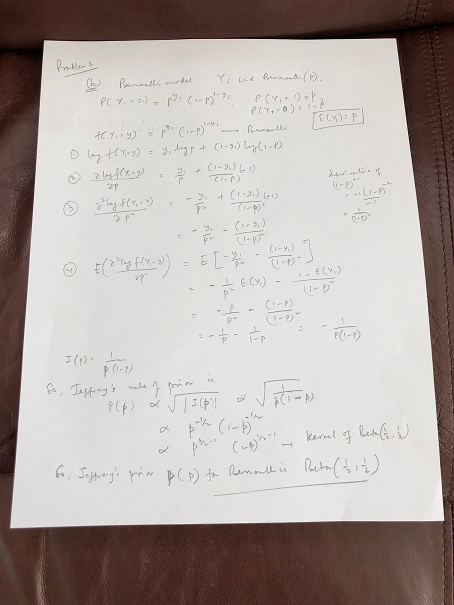 Problem 3
(b) Bernoulli model Yi iid Bernoulli (p).
P(Y₁ = y₁) = p^y₁ (1-p)^1-y₁, P(Y₁ = 1) = p
P(Y₁ = 0) = 1-p
f(Y₁=y) = p^y₁ (1-p)^1-y₁ → Bernoulli E(Y₁) = p
① log f(Y₁=y) = y₁ log p + (1-y₁) log(1-p)
② ∂logf(Y₁=y)/∂p = y₁/p + (1-y₁)(-1)/(1-p)
derivative of
③ ∂²log f(Y₁=y)/∂p² = -y₁/p² + (1-y₁)(-1)/(1-p)²
= -y₁/p² - (1-y₁)/(1-p)²
④ E(∂²log f(Y₁=y)/∂p²) = E[-y₁/p² - (1-y₁)/(1-p)²]
= -1/p² E(Y₁) - 1-E(Y₁)/(1-p)²
= -p/p² - (1-p)/(1-p)²
= -1/p - 1/1-p = -1/p(1-p)
I(p) = 1/p(1-p)
So, Jeffrey's rule of prior is
P(p) ∝ √|I(p)| ∝ √1/p(1-p)
∝ p^-1/2 (1-p)^-1/2
∝ p^1/2-1 (1-p)^1/2-1 → Kernel of Beta(1/2, 1/2)
So, Jeffrey's prior p(p) for Bernoulli is Beta(1/2, 1/2)